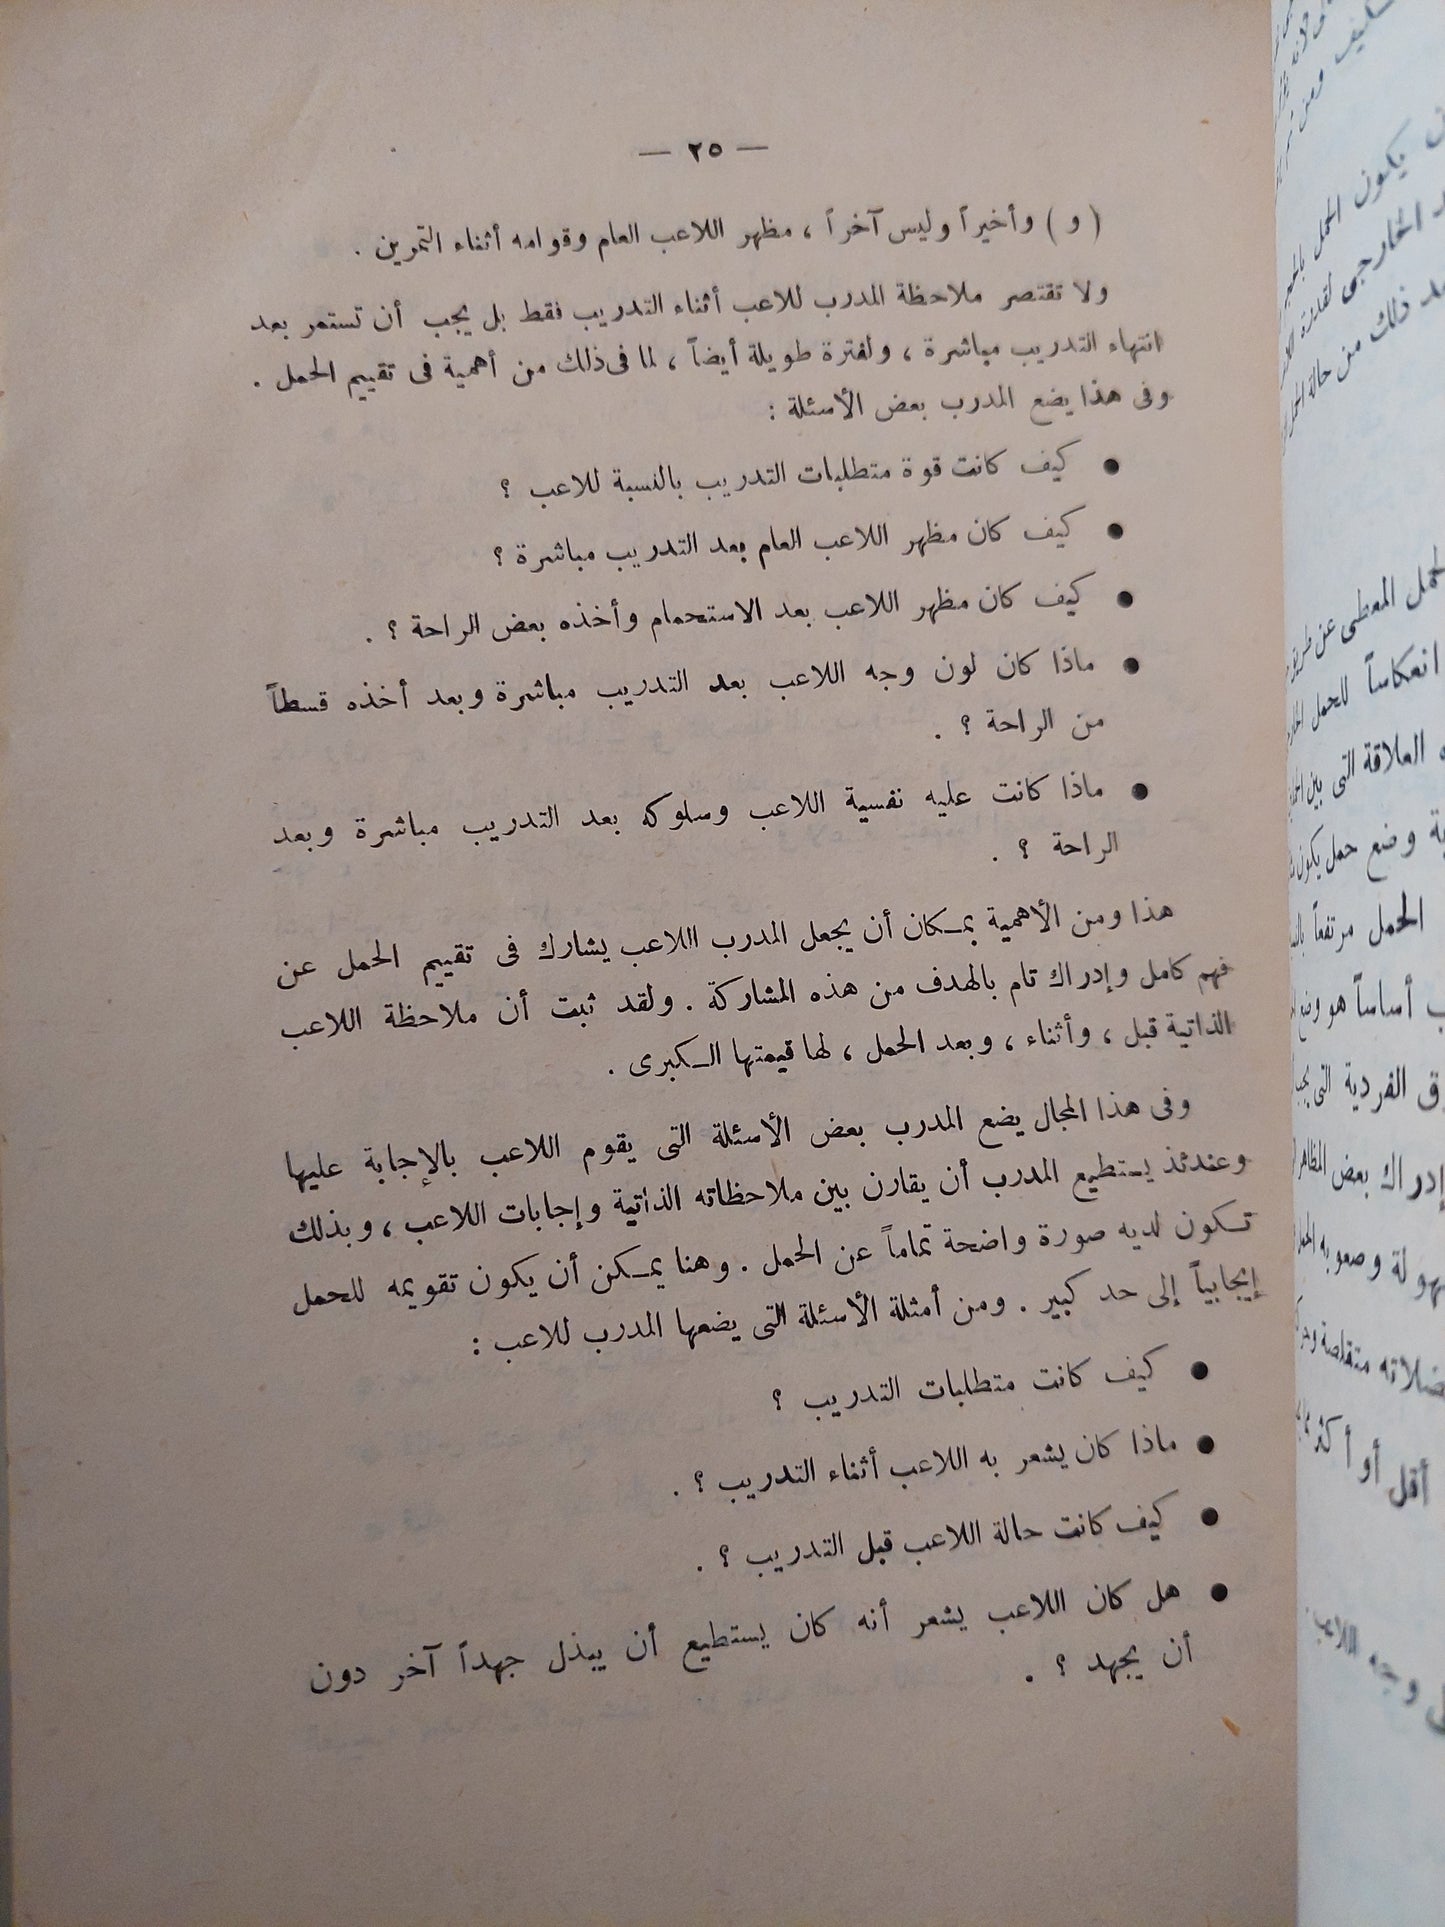 — ٢٥ —
( و ) وأخيراً وليس آخراً ، مظهر اللاعب العام وقوامه أثناء التمرين .
ولا تقتصر ملاحظة المدرب للاعب أثناء التدريب فقط بل يجب أن تستمر بعد
انتهاء التدريب مباشرة ، ولفترة طويلة أيضاً ، لما فى ذلك من أهمية فى تقييم الحمل .
وفى هذا يضع المدرب بعض الأسئلة :
● كيف كانت قوة متطلبات التدريب بالنسبة للاعب ؟
● كيف كان مظهر اللاعب العام بعد التدريب مباشرة ؟
● كيف كان مظهر اللاعب بعد الاستحمام وأخذه بعض الراحة ؟ .
● ماذا كان لون وجه اللاعب بعد التدريب مباشرة وبعد أخذه قسطاً
من الراحة ؟ .
● ماذا كانت عليه نفسية اللاعب وسلوكه بعد التدريب مباشرة وبعد
الراحة ؟ .
هذا ومن الأهمية بمكان أن يجعل المدرب اللاعب يشارك فى تقييم الحمل عن
فهم كامل وإدراك تام بالهدف من هذه المشاركة . ولقد ثبت أن ملاحظة اللاعب
الذاتية قبل ، وأثناء ، وبعد الحمل ، لها قيمتها الكبرى .
وفى هذا المجال يضع المدرب بعض الأسئلة التى يقوم اللاعب بالإجابة عليها
وعندئذ يستطيع المدرب أن يقارن بين ملاحظاته الذاتية وإجابات اللاعب ، وبذلك
تكون لديه صورة واضحة تماماً عن الحمل . وهنا يمكن أن يكون تقويمه للحمل
إيجابياً إلى حد كبير . ومن أمثلة الأسئلة التى يضعها المدرب للاعب :
● كيف كانت متطلبات التدريب ؟
● ماذا كان يشعر به اللاعب أثناء التدريب ؟ .
● كيف كانت حالة اللاعب قبل التدريب ؟ .
● هل كان اللاعب يشعر أنه كان يستطيع أن يبذل جهداً آخر دون
أن يجهد ؟ .
يكون الحمل
الخارجى
ذلك من حالة
المعطى عن
انعكاساً للحمل
العلاقة التى بين
وضع حمل يكون
الحمل مرتفعاً
أساساً هو وضع
الفردية التى
إدراك بعض المظاهر
وصعوبه
متقلصة
أقل أو أكثر
وجه اللاعب